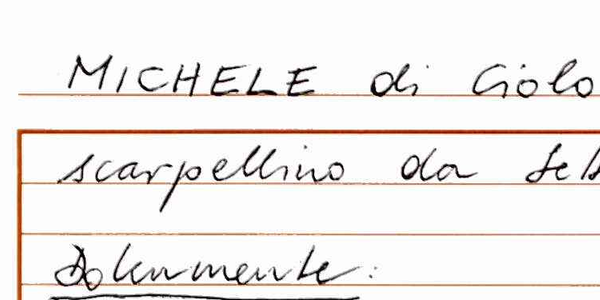 MICHELE di Ciolo
scarpellino da
Dokumente: